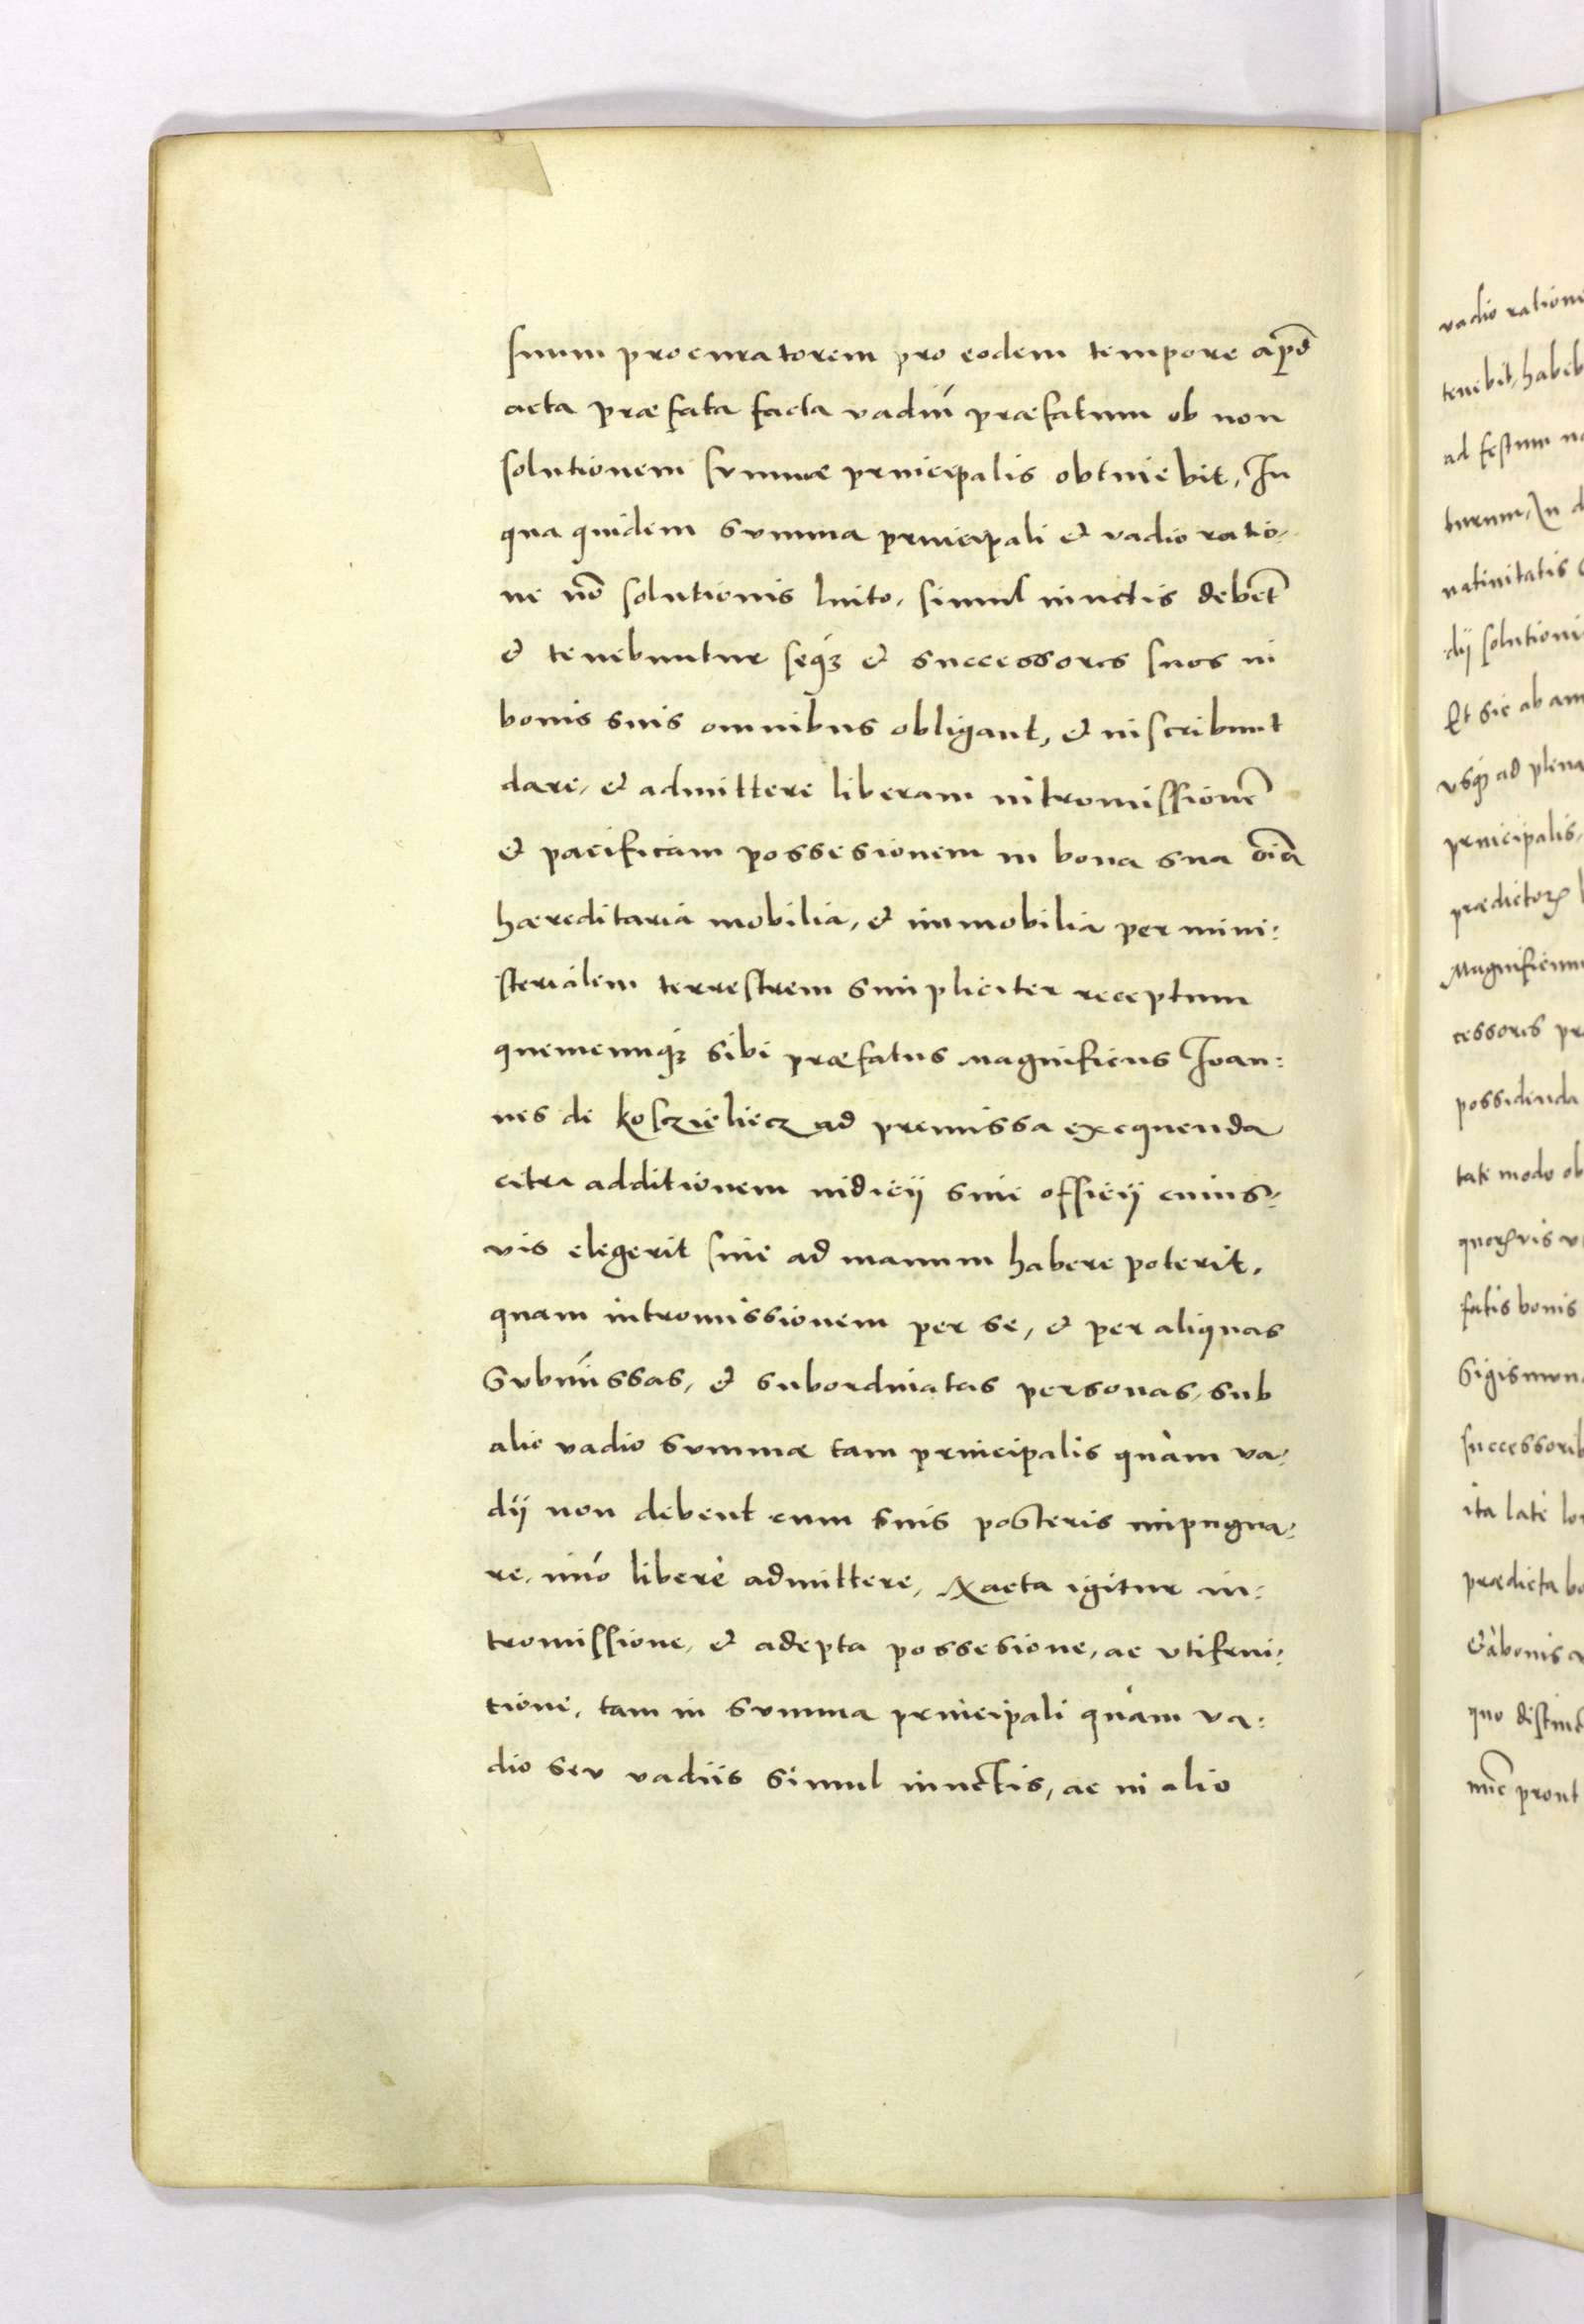 suum procuratorem pro eodem tempore apd̄
acta præfata facta vadiū præfatum ob non
solutionem summæ principalis obtinebit, In
qua quidem summa principali et vadio ratio-
ne nō solutionis luito, simul iunctis debēt
et tenebuntur seqȝ et successores suos in
bonis suis omnibus obligant, et inscribunt
dare, et admittere liberam intromissionē
et pacificam possesionem in bona sua oīa
hæreditaria mobilia, et immobilia per mini:
sterialem terrestrem simpliciter receptum
quemcunqȝ sibi præfatus Magnificus Ioan:
nes de Kosczieliecz ad premissa exequenda
citra additionem iudicij siue officij cuius-
vis elegerit siue ad manum habere poterit.
quam intromissionem per se, et per aliquas
submissas, et subordinatas personas, sub
alio vadio summæ tam principalis quàm va:
dij non debent cum suis posteris impugna:
re, imó liberè admittere, Exacta igitur in:
tromissione, et adepta possesione, ac vtifrui:
tione, tam in summa principali quàm va:
dio seu vadiis simul iunctis, ac in alio
vadio ration
tenebit, habeb
ad festum na
turum, In d
natiuitatis
dij solutioni
Et sic ab am
vsqȝ ad plena
principalis,
prædictorꝝ
Magnificum
cessores pr
possidenda
tate modo ob
quorꝝvis
fatis bonis
Sigismun
successorib
ita latè lo
prædicta bo
et à bonis
quo distinc
nūc prout